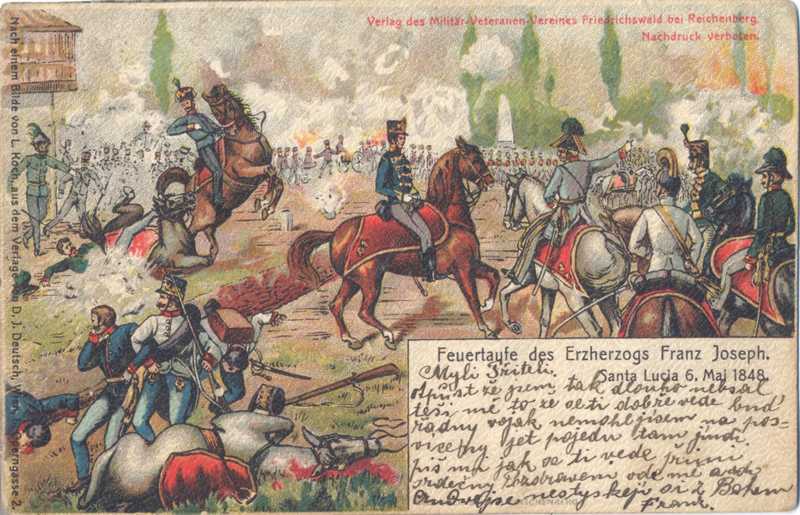 Verlag des Militär-Veteranen-Vereines Friedrichswald bei Reichenberg.
Nachdruck verboten.
Nach einem Bilde von L. Koch, aus dem Verlage von D. J. Deutsch, Wien,
gasse 2.
Feuertaufe des Erzherzogs Franz Joseph.
Santa Lucia 6. Mai 1848.
Mylí Příteli.
odpust že jsem tak dlouho nebsal
těší mě to že se ti dobře vede buď
řadny voják nemohl jsem na pos-
vícení jet pojedu tam jindi.
piš mu jak se ti vede přimi
srdečný Pozdravem ode mě a
nestyskej si z Bohem
Franz.